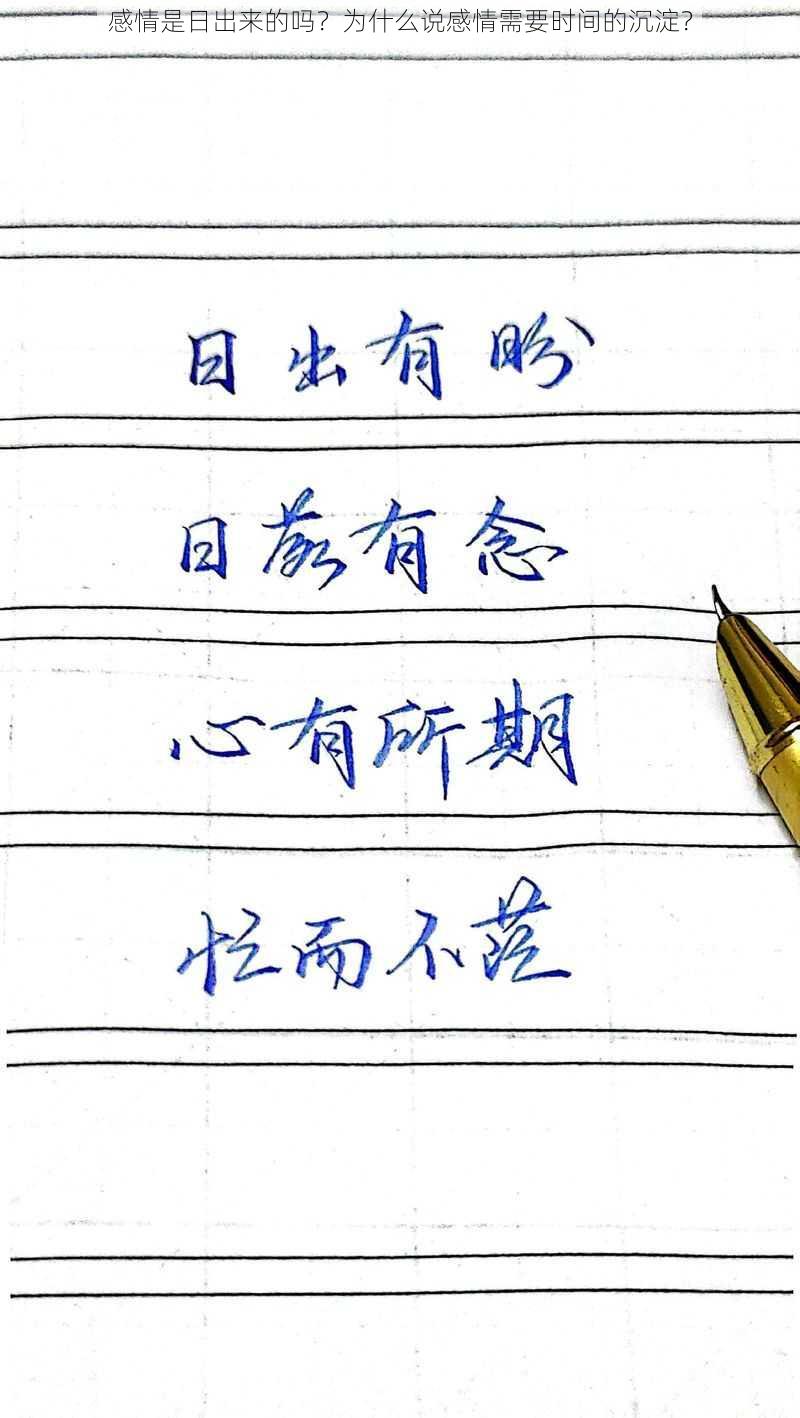 感情是日出来的吗？为什么说感情需要时间的沉淀？
日出有盼
日落有念
心有所期
忙而不茫